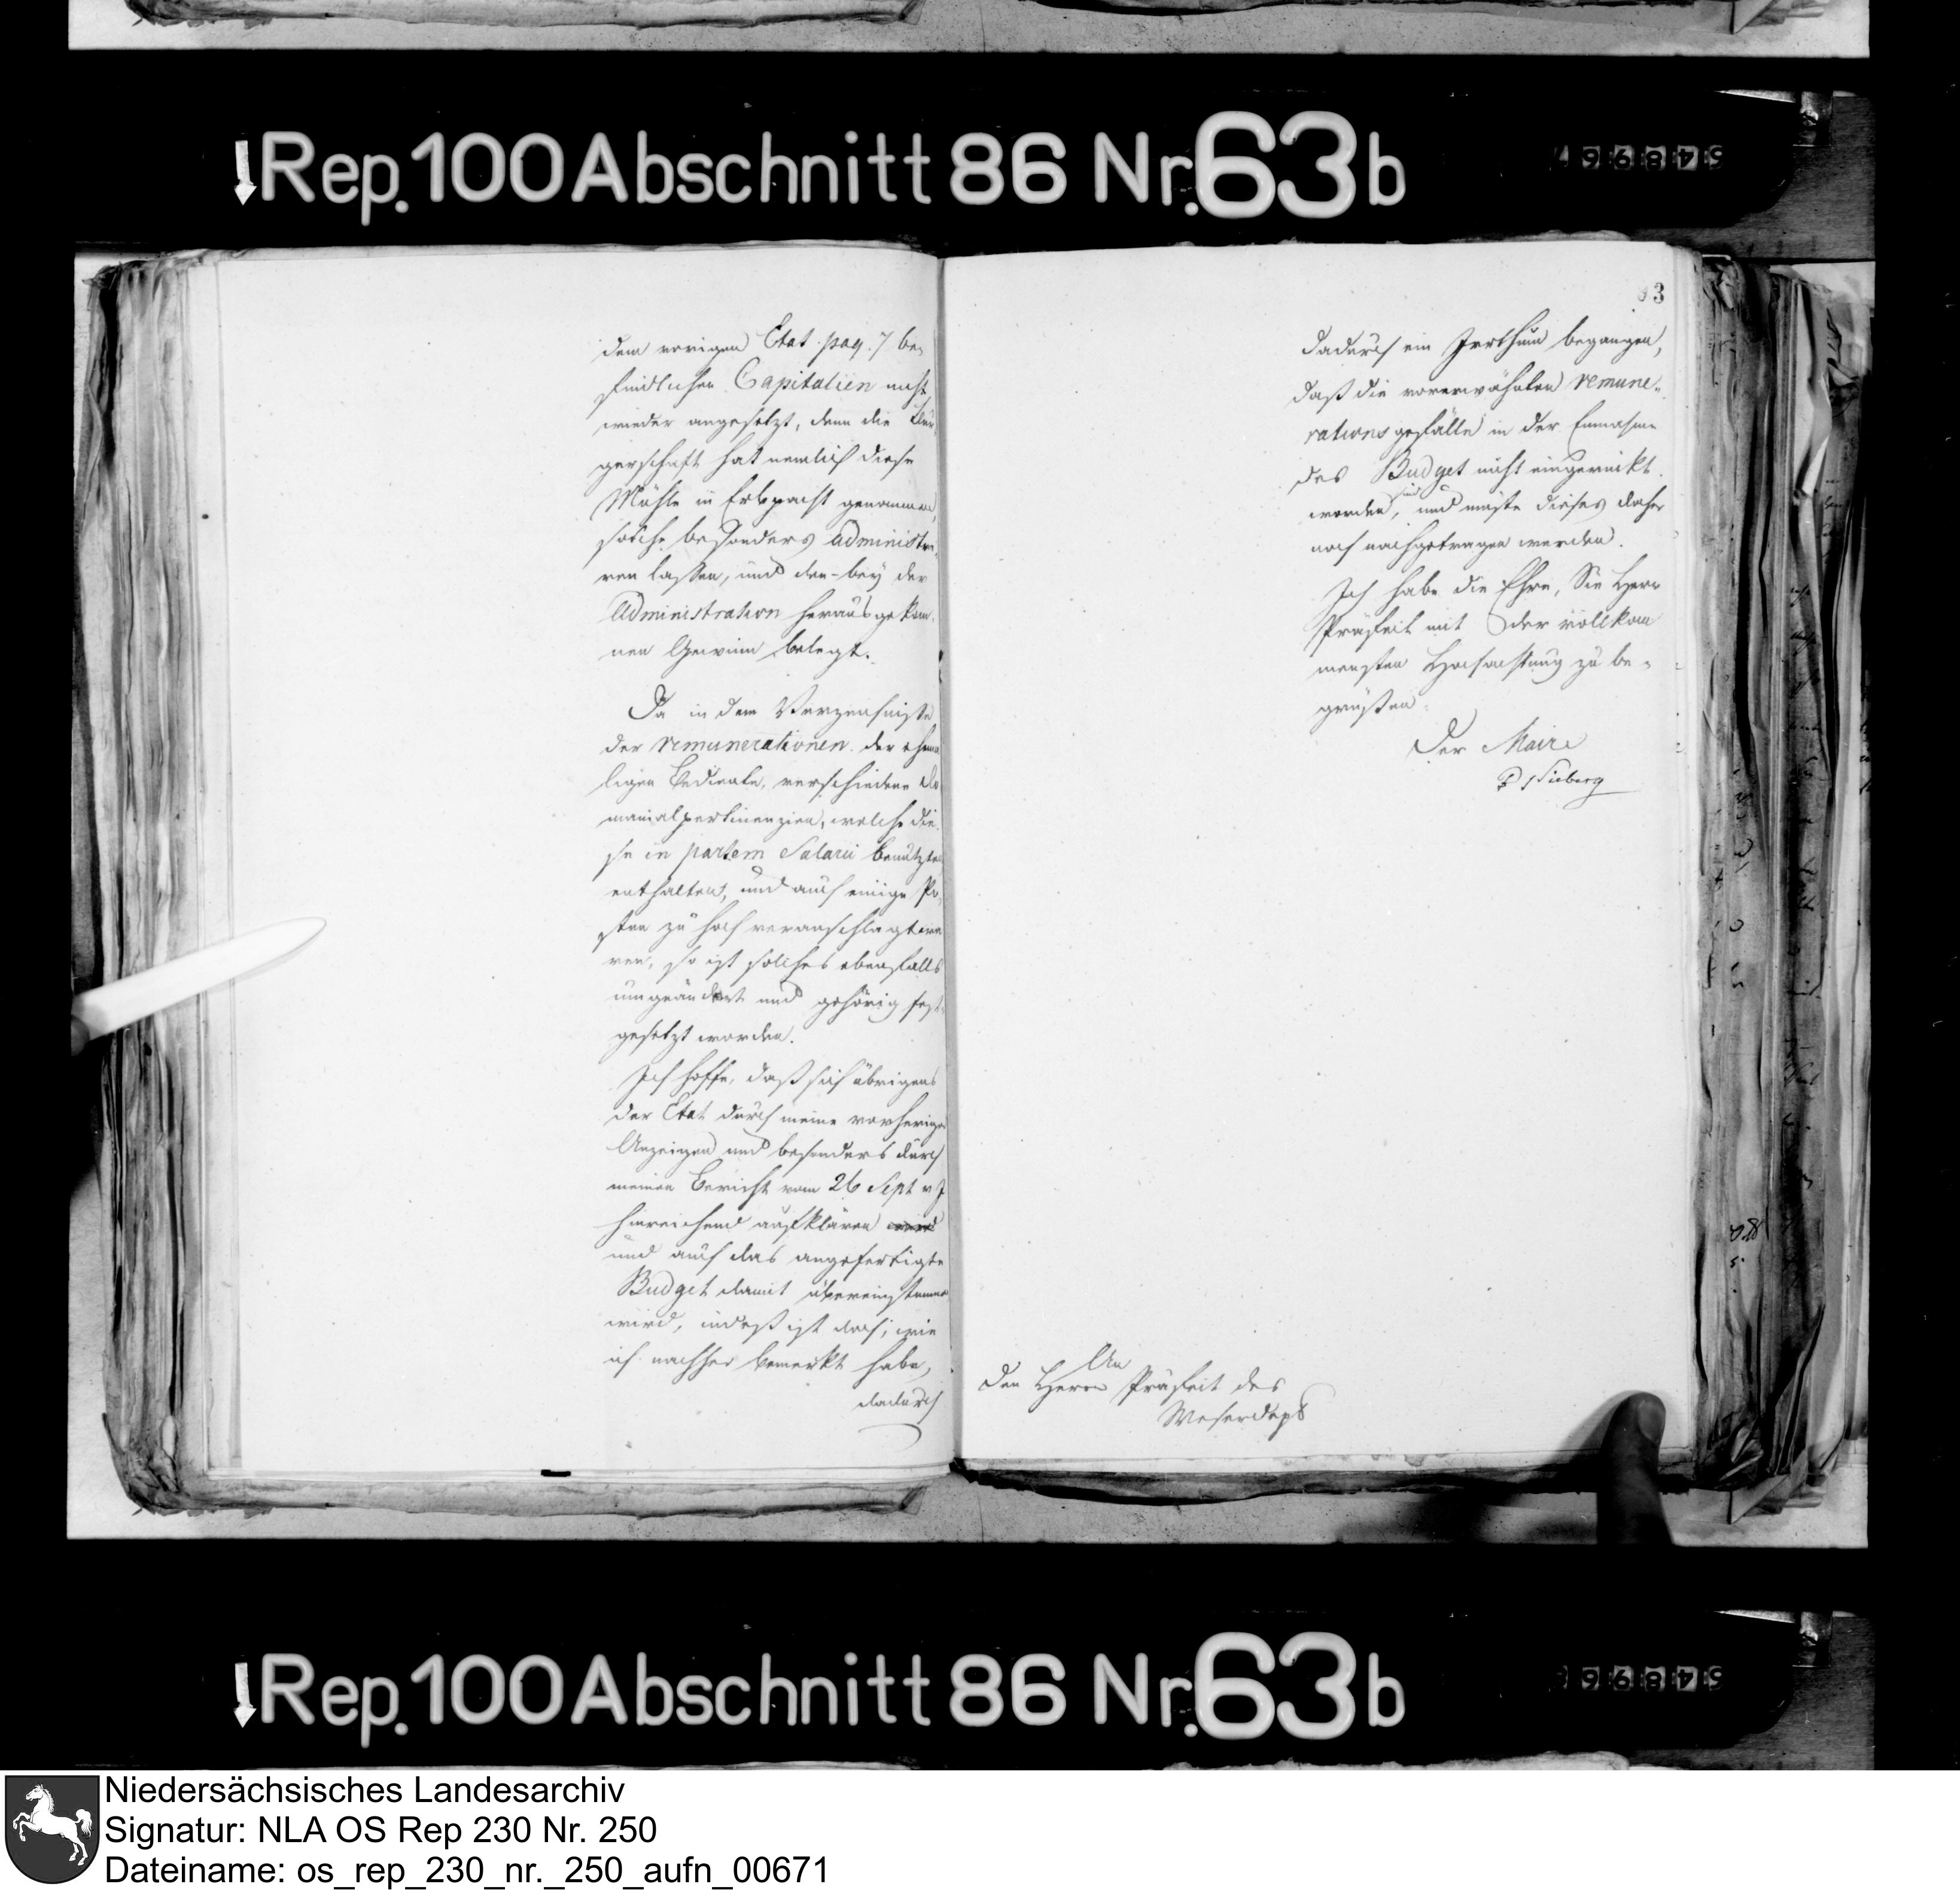 Rep. 100 Abschnitt 86 Nr. 63 b
54896
dem vorigen Etat pag. 7 be-
findlichen Capitalien nicht
wieder angesetzt, denn die Bür-
gerschaft hat nemlich diese
Mühle in Erbpacht genommen,
solche besonders administri-
ren lassen, und den bey der
Administration herausgekom-
nen Gewinn belegt.
Da in dem Verzeichniße
der remunerationen der ehema
ligen Bediente, verschiedene Do
manialpertinenzien, welche die
se in partem Salarii benutzten
enthalten, und auch einige Po-
sten zu hoch veranschlagt wa
ren, so ist solches ebenfalls
umgeändert und gehörig fest-
gesetzt worden.
Ich hoffe, daß sich übrigens
der Etat durch meine vorherigen
Anzeigen und besonders durch
meinen Bericht vom 26 Sept v J
hinreichend aufklären wird
und auch das angefertigte
Budget damit übereinstimmen
wird, indeß ist doch, wie
ich nachher bemerkt habe,
dadurch
93
dadurch ein Irrthum begangen,
daß die vorerwähnten remune-
rations gefälle in der Einnahme
des Budget nicht eingerückt
sind
worden, und müste dieses daher
noch nachgetragen werden.
Ich habe die Ehre, Sie Herr
Präfect mit der vollkom
mensten Hochachtung zu be-
grüßen.
Der Maire
Sieberg
An
den Herrn Präfect des
Weserdepts
Rep. 100 Abschnitt 86 Nr. 63 b
54896
Niedersächsisches Landesarchiv
Signatur: NLA OS Rep 230 Nr. 250
Dateiname: os_rep_230_nr._250_aufn_00671